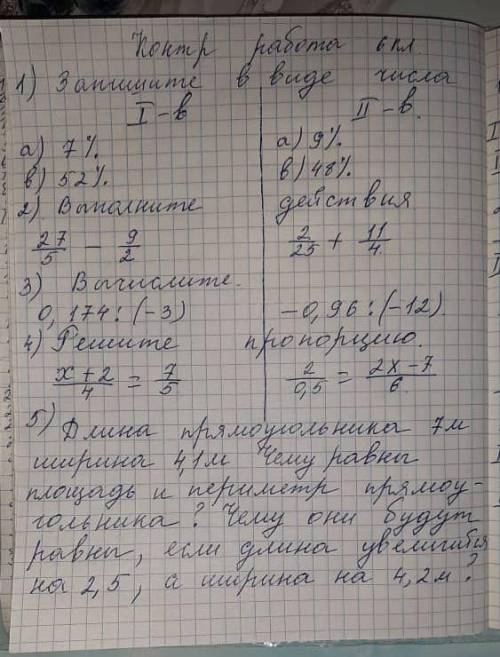 Контр работа 6 кл
1) Запишите в виде числа
I-в II-в.
а) 7% а) 9%.
в) 52%. в) 48%
2) Выполните действия
27/5 - 9/2 2/25 + 11/4.
3) Вычислите.
0,174:(-3) -0,96:(-12)
4) Решите пропорцию.
x+2/4 = 7/5 2/0,5 = 2x-7/6
5) Длина прямоугольника 7м
ширина 4,1м Чему равны
площадь и периметр прямоу-
гольника? Чему они будут
равны, если длина увеличится
на 2,5, а ширина на 4,2м?